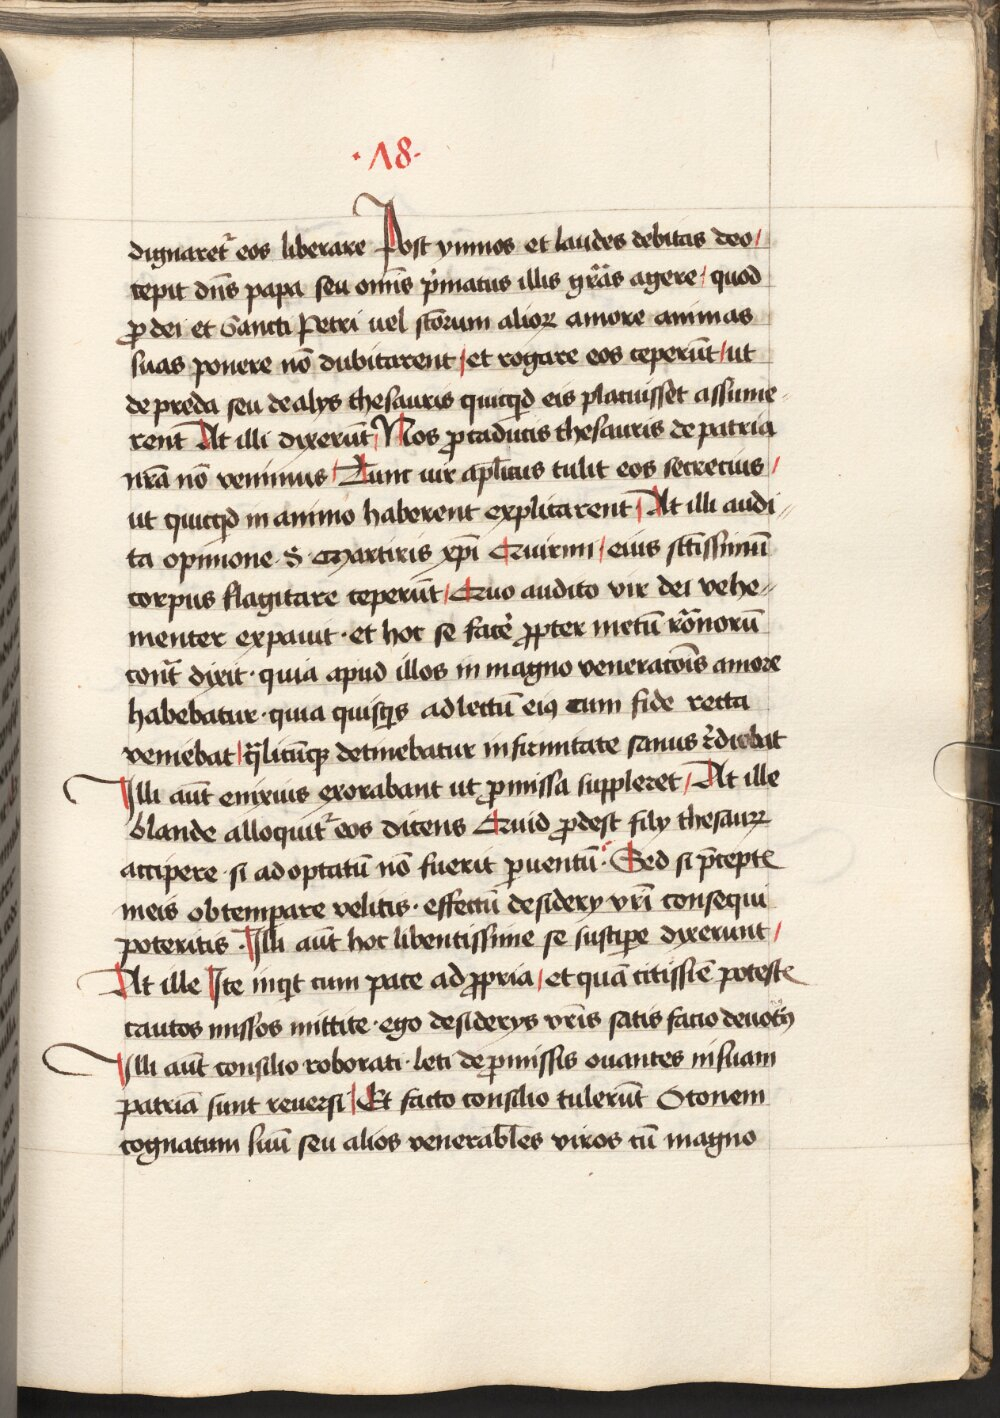 ·18·
dignaret᷑ eos liberare Post ymnos et laudes debitas deo/
cepit dn̄s papa seu om̄is p̍matus illis gr̄as agere / quod
ꝓ dei et Sancti Petri uel sc̄torum alioꝝ amore animas
suas ponere nō dubitarent / et rogare eos ceperūt / ut
de preda seu de alys thesauris quicq̍d eis placuiss̄et assume-
rent At illi dixerūt / Nos ꝓ caducis thesauris de patria
nr̄a nō venimus / Tunc uir ap̄licus tulit eos secrecius /
ut quicq̍d in animo haberent explicarent / At illi audi-
ta opinione · S · Martiris xp̄i Quirini / eius sc̄tissimū
corpus flagitare ceperūt / Quo audito vir dei vehe-
menter expauit · et hoc se fac̄e ꝓpter metū ro̅norū
cont᷑ dixit · quia apud illos in magno veneraco̅is amore
habebatur · quia quisq̍s ad lectū eiꝯ cum fide recta
veniebat / q̄licūqꝫ detinebatur infirmitate sanus r̄dicebat
Illi aūt enixius exorabant ut ꝓmissa suppleret / At ille
blande alloquit᷑ eos dicens Quid ꝓdest fily thesauꝝ
accipere · si ad optatū nō fuerit ꝑuentū · Sed si p̄cept
meis obtemꝑare velitis · effectū desidery vr̄i consequi
poteritis · Illi aūt hoc libentissime se susciꝑe dyxerunt /
At ille Ite inq̍t cum pace ad ꝓpria / et quā citissi̅e poteste
cautos missos mittite · ego desiderys vr̄is satis facio
Illi aūt consilio roborati · leti de ꝓmissis ouantes in suam
patriā sunt reuersi / Et facto consilio tulerūt Otonem
cognatum suū seu alios venerab̄les viros cū magno